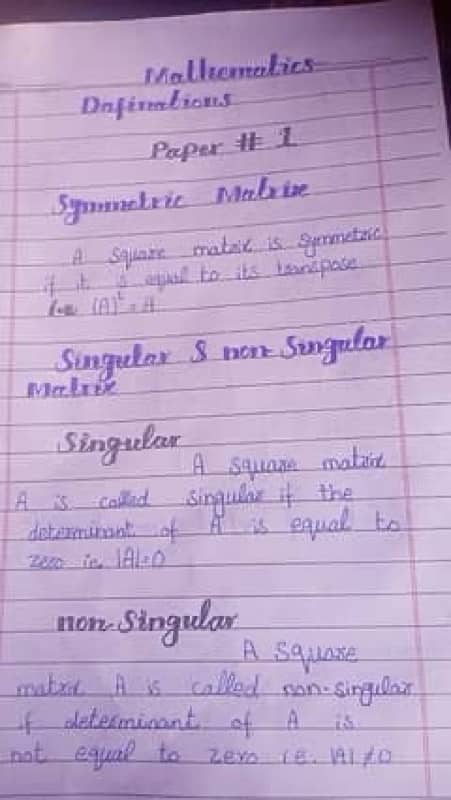 Mathematics
Dafinations
Paper # 1
Symmetric Matrix
A Square matrix is Symmetric
if it is equal to its transpose
i.e (A)ᵗ = A
Singular & non Singular
Matrix
Singular
A square matrix
A is called singular if the
determinant of A is equal to
zero i.e. |A|=0
non-Singular
A Square
matrix A is called non-singular
if determinant of A is
not equal to zero i.e. |A|≠0